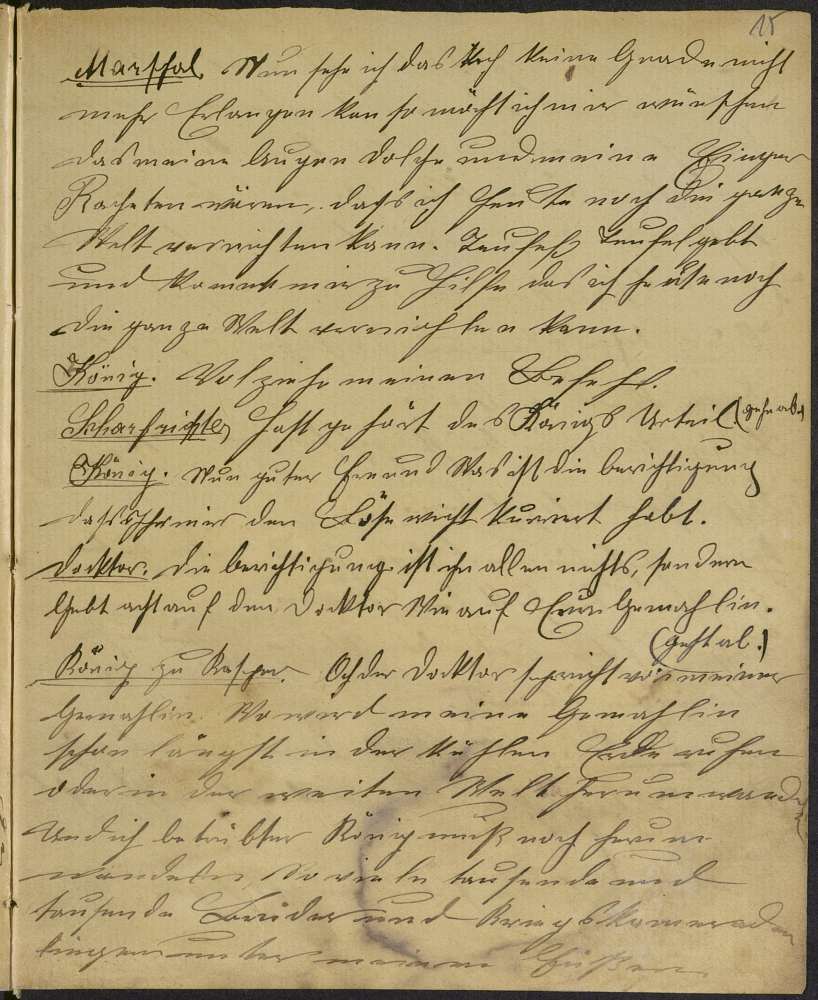 15
Marschal. Nun sehe ich das Ach keine Gnade nicht
mehr Erlangen kan so möcht ich mir wünschen
das meine Augen Dolche und meine Finger
Racheten wären, dass ich heute noch die ganze
Welt vernichten kann. Teufel, Teufel gebt
und kommt mir zu Hilfe das ich heute noch
die ganze Welt vernichten kann.
König. Volziehe meinen Befehl.
Scharfrichter hast gehört des Königs Urteil (gehn ab)
König. Nun guter Freund Was ist die berichtigung
dass Ihr mir den Böse wicht kuriert habt.
Docktor. die berichtigung ist in allen nichts, sondern
Gebt acht auf den Docktor Wie auf Eure Gemahlin.
(geht ab.)
König zu Kasper. Och der Docktor spricht von meiner
Gemahlin. Wo wird meine Gemahlin
schon längst in der kühlen Erde ruhen
oder in der weiten Welt herum wandeln
Und ich betrübter König muß noch herum
wandeln, So viele tausende und
tausende Brüder und Kriegskameraden
liegen unter meinen Füßen